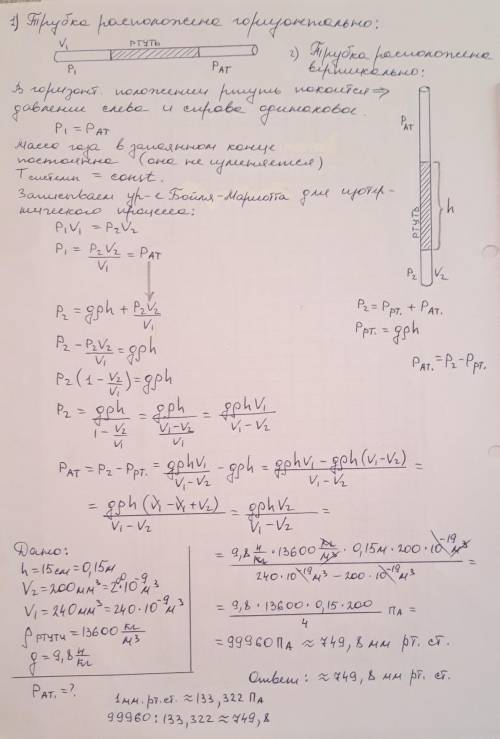 1) Трубка расположена горизонтально:
V₁ РТУТЬ
P₁ PАТ
2) Трубка расположена
вертикально:
В горизонт. положении ртуть покоится ⇒
давление слева и справа одинаковое.
P₁ = PАТ
Масса газа в запаянном конце
постоянна (она не изменяется)
Tсистемы = const.
Записываем ур-е Бойля-Мариотта для изотер-
мического процесса:
P₁V₁ = P₂V₂
P₁ = P₂V₂/V₁ = PАТ
P₂ = gρh + P₂V₂/V₁
P₂ - P₂V₂/V₁ = gρh
P₂(1 - V₂/V₁) = gρh
P₂ = gρh/(1 - V₂/V₁) = gρh/((V₁-V₂)/V₁) = gρhV₁/(V₁-V₂)
PАТ = P₂ - Pрт. = gρhV₁/(V₁-V₂) - gρh = (gρhV₁ - gρh(V₁-V₂))/(V₁-V₂) =
= gρh(V₁-V₁+V₂)/(V₁-V₂) = gρhV₂/(V₁-V₂) =
PАТ
РТУТЬ
h
P₂ V₂
P₂ = Pрт. + PАТ.
Pрт. = gρh
PАТ. = P₂ - Pрт.
Дано:
h = 15см = 0,15м
V₂ = 200мм³ = 200·10⁻⁹м³
V₁ = 240мм³ = 240·10⁻⁹м³
ρртути = 13600 кг/м³
g = 9,8 н/кг
PАТ. = ?
= (9,8 н/кг · 13600 кг/м³ · 0,15м · 200·10⁻¹⁹м³)/(240·10⁻¹⁹м³ - 200·10⁻¹⁹м³) =
= (9,8 · 13600 · 0,15 · 200)/4 Па =
= 99960Па ≈ 749,8 мм рт. ст.
Ответ: ≈ 749,8 мм рт. ст.
1мм.рт.ст. ≈ 133,322 Па
99960 : 133,322 ≈ 749,8